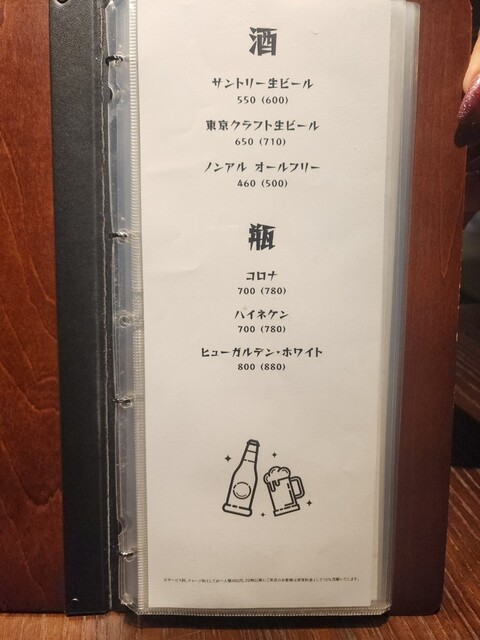 酒
サントリー生ビール
550 (600)
東京クラフト生ビール
650 (710)
ノンアル オールフリー
460 (500)
瓶
コロナ
700 (780)
ハイネケン
700 (780)
ヒューガルデン・ホワイト
800 (880)